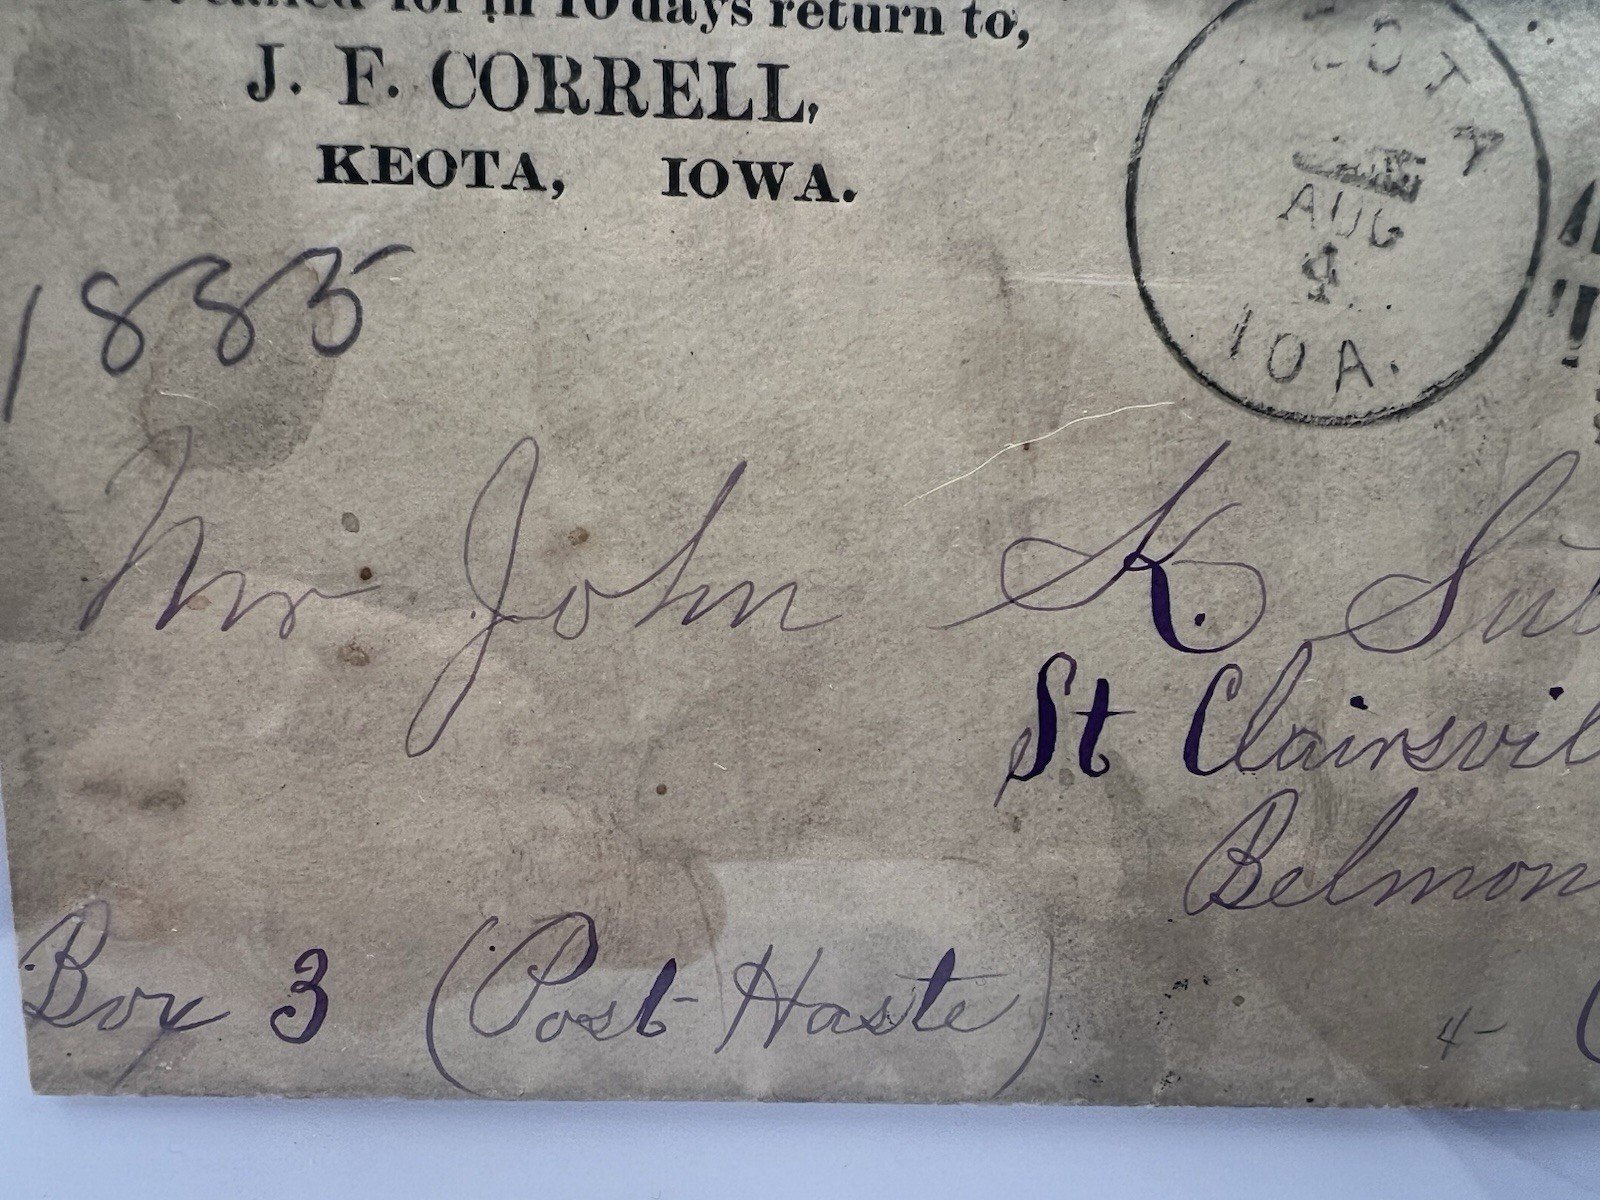 called for in 10 days return to,
J. F. CORRELL,
KEOTA, IOWA.
EOTA
AUG
4
IOA.
1885
Mr John K. Sut
St Clairsvil
Belmon
Box 3 (Post Haste)
4-